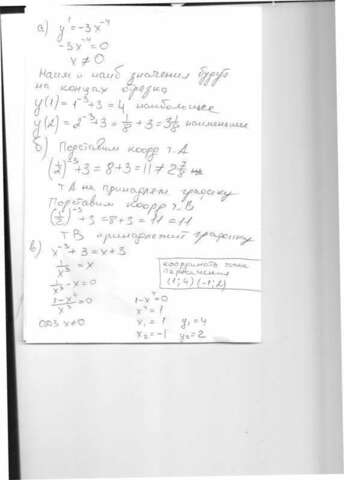 а) y' = -3x⁻⁴
-3x⁻⁴ = 0
x ≠ 0
Наим и наиб значения будут
на концах отрезка
y(1) = 1⁻³+3 = 4 наибольшее
y(2) = 2⁻³+3 = 1/8 + 3 = 3 1/8 наименьшее
б) Подставим коорд т.А
(1/2)⁻³+3 = 8+3 = 11 ≠ 2 7/8
т А не принадлеж графику
Подставим коорд т.В
(1/2)⁻³ + 3 = 8+3 = 11 = 11
т В принадлежит графику
в) x⁻³ + 3 = x + 3
1/x³ = x
1/x³ - x = 0
(1-x⁴)/x³ = 0
x≠0
1-x⁴=0
x⁴=1
x₁ = 1 y₁ = 4
x₂ = -1 y₂ = 2
координаты точек
пересечения
(1; 4) (-1; 2)